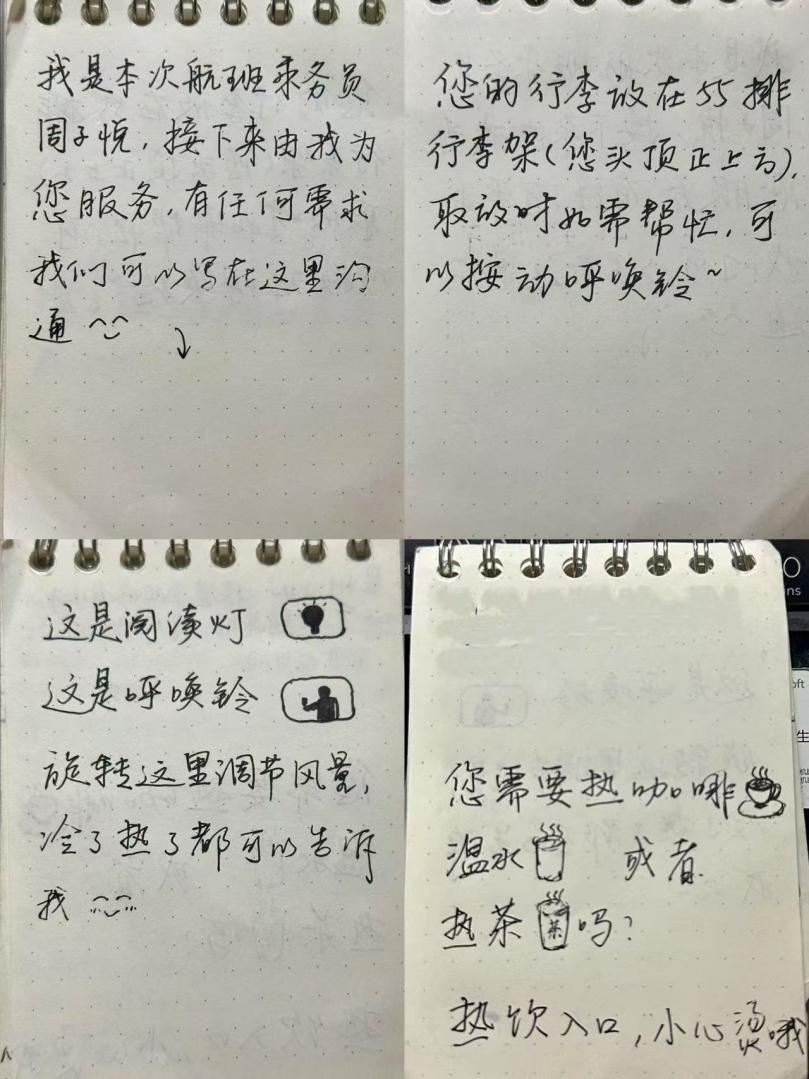 我是本次航班乘务员
周子悦，接下来由我为
您服务，有任何需求
我们可以写在这里沟
通
您的行李放在55排
行李架（您头顶正上方），
取放时如需帮忙，可
以按动呼唤铃~
这是阅读灯
这是呼唤铃
旋转这里调节风量，
冷了热了都可以告诉
我
您需要热咖啡
温水 或者
热茶 茶 吗？
热饮入口，小心烫哦